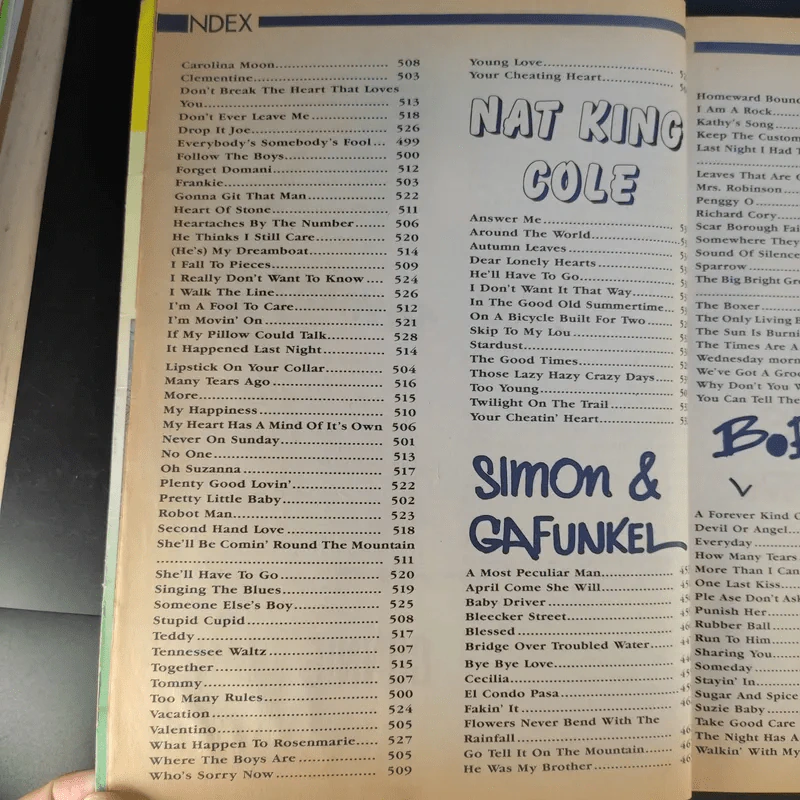 INDEX
Carolina Moon............................ 508
Clementine................................ 503
Don't Break The Heart That Loves
You........................................ 513
Don't Ever Leave Me.................. 518
Drop It Joe................................ 526
Everybody's Somebody's Fool... 499
Follow The Boys........................ 500
Forget Domani........................... 512
Frankie..................................... 503
Gonna Git That Man................... 522
Heart Of Stone.......................... 511
Heartaches By The Number....... 506
He Thinks I Still Care................. 520
(He's) My Dreamboat.................. 514
I Fall To Pieces......................... 509
I Really Don't Want To Know .... 524
I Walk The Line......................... 526
I'm A Fool To Care.................... 512
I'm Movin' On........................... 521
If My Pillow Could Talk.............. 528
It Happened Last Night.............. 514
Lipstick On Your Collar.............. 504
Many Tears Ago........................ 516
More........................................ 515
My Happiness........................... 510
My Heart Has A Mind Of It's Own 506
Never On Sunday...................... 501
No One.................................... 513
Oh Suzanna.............................. 517
Plenty Good Lovin'.................... 522
Pretty Little Baby...................... 502
Robot Man................................ 523
Second Hand Love .................... 518
She'll Be Comin' Round The Mountain
............................................. 511
She'll Have To Go..................... 520
Singing The Blues..................... 519
Someone Else's Boy.................. 525
Stupid Cupid............................ 508
Teddy ..................................... 517
Tennessee Waltz...................... 507
Together.................................. 515
Tommy.................................... 507
Too Many Rules........................ 500
Vacation.................................. 524
Valentino................................. 505
What Happen To Rosenmarie..... 527
Where The Boys Are ................. 505
Who's Sorry Now...................... 509
Young Love..............................
Your Cheating Heart..................
NAT KING
COLE
Answer Me...............................
Around The World.....................
Autumn Leaves.........................
Dear Lonely Hearts...................
He'll Have To Go......................
I Don't Want It That Way...........
In The Good Old Summertime...
On A Bicycle Built For Two........
Skip To My Lou........................
Stardust..................................
The Good Times.......................
Those Lazy Hazy Crazy Days.....
Too Young...............................
Twilight On The Trail................
Your Cheatin' Heart..................
SIMON &
GAFUNKEL
A Most Peculiar Man.................
April Come She Will..................
Baby Driver.............................
Bleecker Street........................
Blessed...................................
Bridge Over Troubled Water......
Bye Bye Love...........................
Cecilia....................................
El Condo Pasa..........................
Fakin' It..................................
Flowers Never Bend With The
Rainfall...................................
Go Tell It On The Mountain........
He Was My Brother...................
Homeward
I Am A Rock.......
Kathy's Song
Keep The
Last Night I Had
....................
Leaves That Are
Mrs. Robinson
Penggy O
Richard Cory
Scar Borough
Somewhere They
Sound Of
Sparrow
....................
The Big Bright
The Boxer
The Only Living
The Sun Is
The Times Are A
Wednesday
We've Got A
Why Don't You
You Can Tell The
A Forever Kind
Devil Or Angel
Everyday
How Many Tears
More Than I Can
One Last Kiss
Ple Ase Don't
Punish Her
Rubber Ball
Run To Him
Sharing You
Someday
Stayin' In
Sugar And Spice
Suzie Baby
Take Good Care
The Night Has A
Walkin' With My